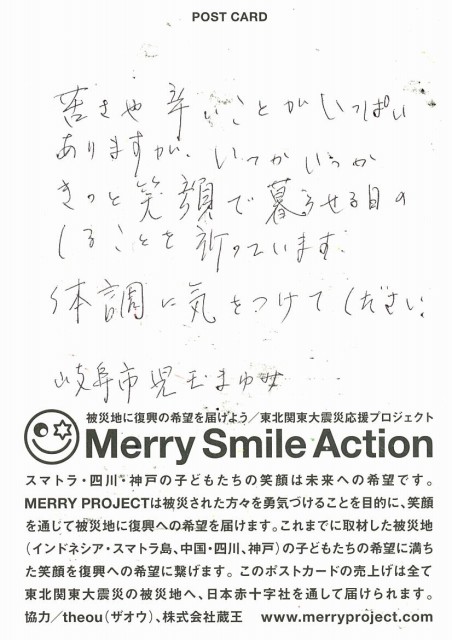 POST CARD
苦さや辛いことがいっぱい
ありますが、いつかいつか
きっと笑顔で暮らせる日の
くることを祈っています
体調に気をつけてください
岐阜市 児玉まゆ
被災地に復興の希望を届けよう/東北関東大震災応援プロジェクト
Merry Smile Action
スマトラ・四川・神戸の子どもたちの笑顔は未来への希望です。
MERRY PROJECTは被災された方々を勇気づけることを目的に、笑顔
を通じて被災地に復興への希望を届けます。これまでに取材した被災地
(インドネシア・スマトラ島、中国・四川、神戸)の子どもたちの希望に満ち
た笑顔を復興への希望に繋げます。このポストカードの売上げは全て
東北関東大震災の被災地へ、日本赤十字社を通して届けられます。
協力/theou(ザオウ)、株式会社蔵王 www.merryproject.com